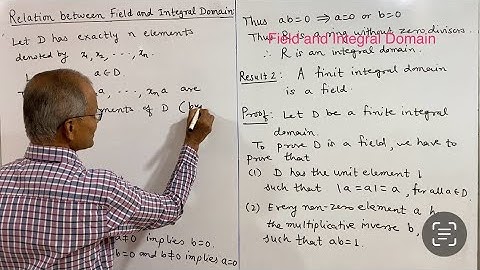 Relation between Field and Integral Domain:
Let D has exactly n elements
denoted by x₁, x₂, ..., xₙ.
a ∈ D.
a, ..., xₙa are
ments of D (by
≠0 implies b=0.
b=0 and b≠0 implies a=0
Thus ab=0 ⇒ a=0 or b=0
Thus R is a ring without zero divisors.
Field and Integral Domain
∴ R is an integral domain.
Result 2: A finite integral domain
is a field.
Proof: Let D be a finite integral
domain.
To prove D is a field, we have to
prove that
(1) D has the unit element 1
such that 1a = a1 = a, for all a ∈ D.
(2) Every non-zero element a
the multiplicative inverse b,
such that ab=1.